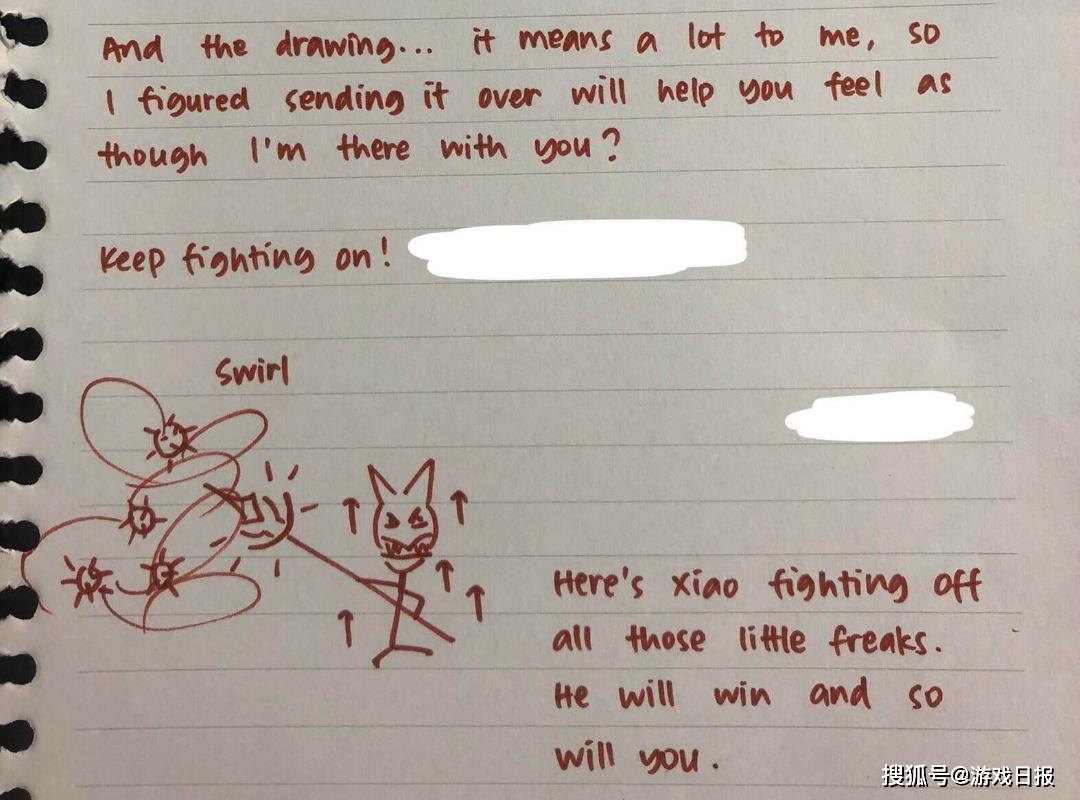 And the drawing... it means a lot to me, so
I figured sending it over will help you feel as
though I'm there with you?
Keep fighting on!
Swirl
Here's Xiao fighting off
all those little freaks.
He will win and so
will you.
搜狐号@游戏日报